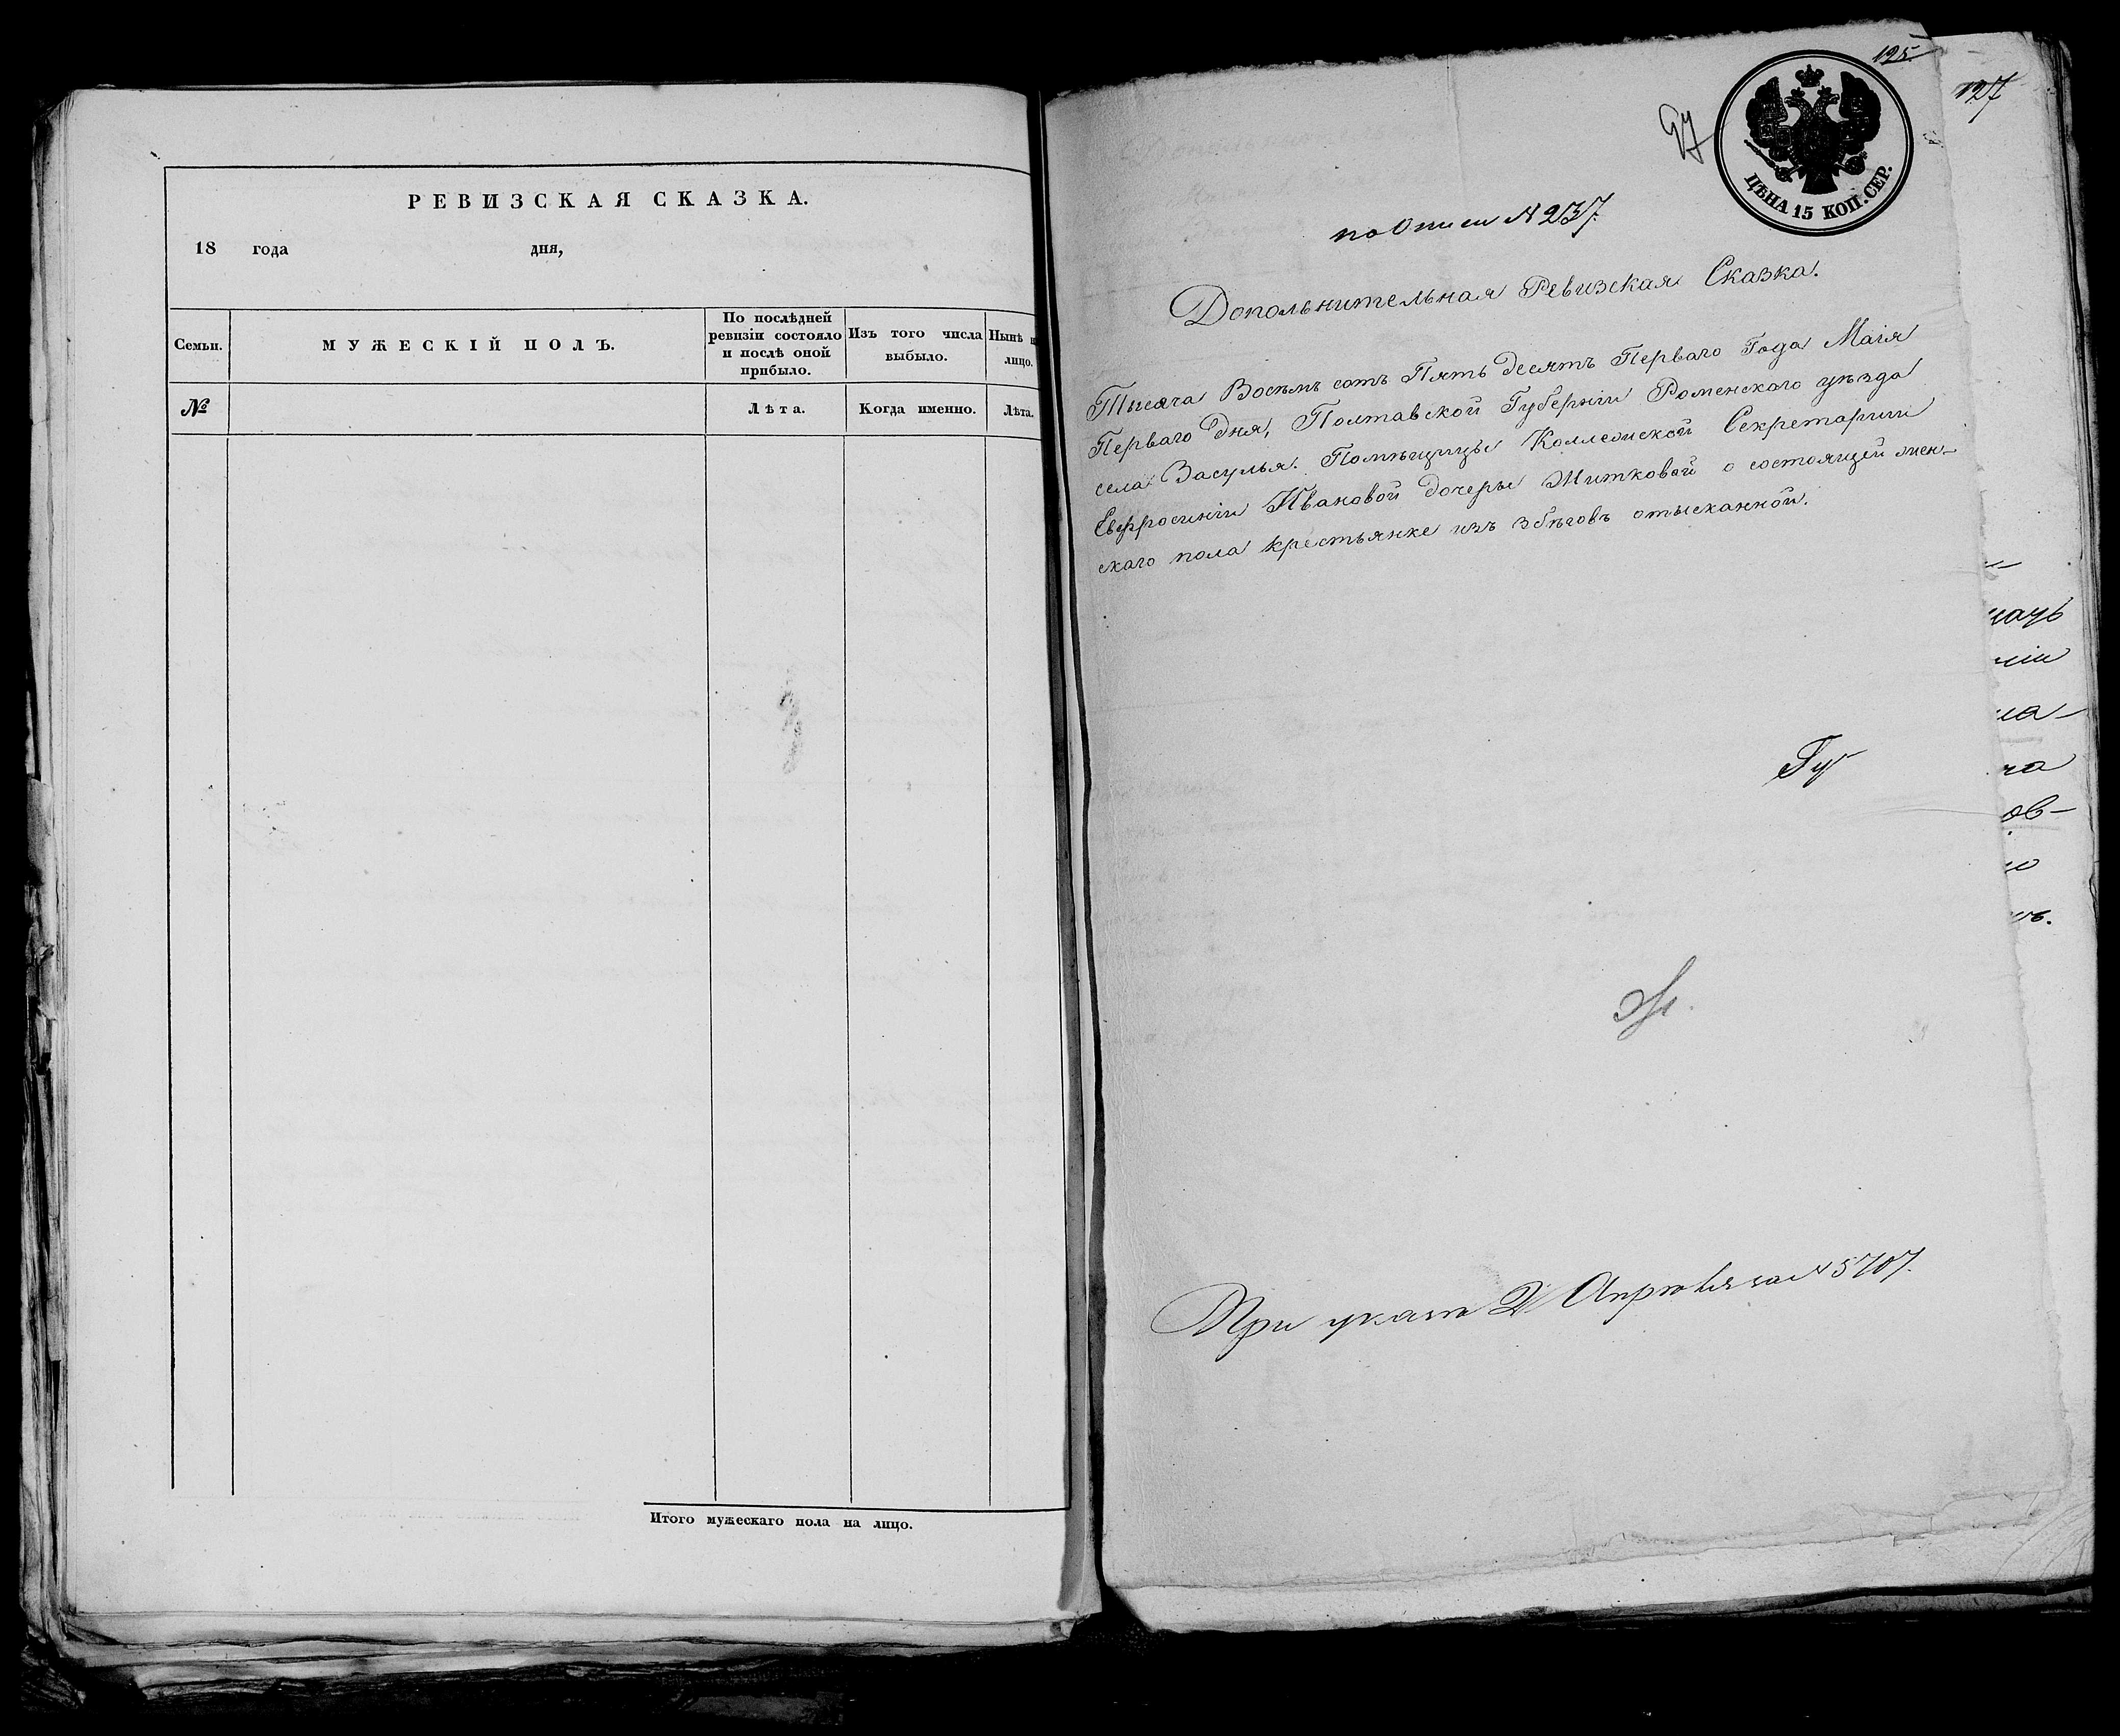 РЕВИЗСКАЯ СКАЗКА.
18 года дня,
Семьи.
МУЖЕСКІЙ ПОЛЪ.
По послѣдней
ревизіи состояло
и послѣ оной
прибыло.
Изъ того числа
выбыло.
Нынѣ н
лицо.
№
Лѣта.
Когда именно.
Лѣта.
Итого мужескаго пола на лицо.
125
127
97
ЦѢНА 15 КОП. СЕР.
по Описи N 237.
Допольнительная Ревизская Сказка.
Тысяча Восемь сотъ Пять десятъ Перваго Года Маія
Перваго Дня, Полтавской Губерніи Роменскаго уѣзда
села Засулья. Помѣщицы Коллежской Секретарши
Евфросиніи Ивановой дочеры Житковой о состоящей жен-
скаго пола крестьянке изъ збѣговъ отысканной.
Гу
При указѣ 2 Апрѣля за N 5707.
ов-